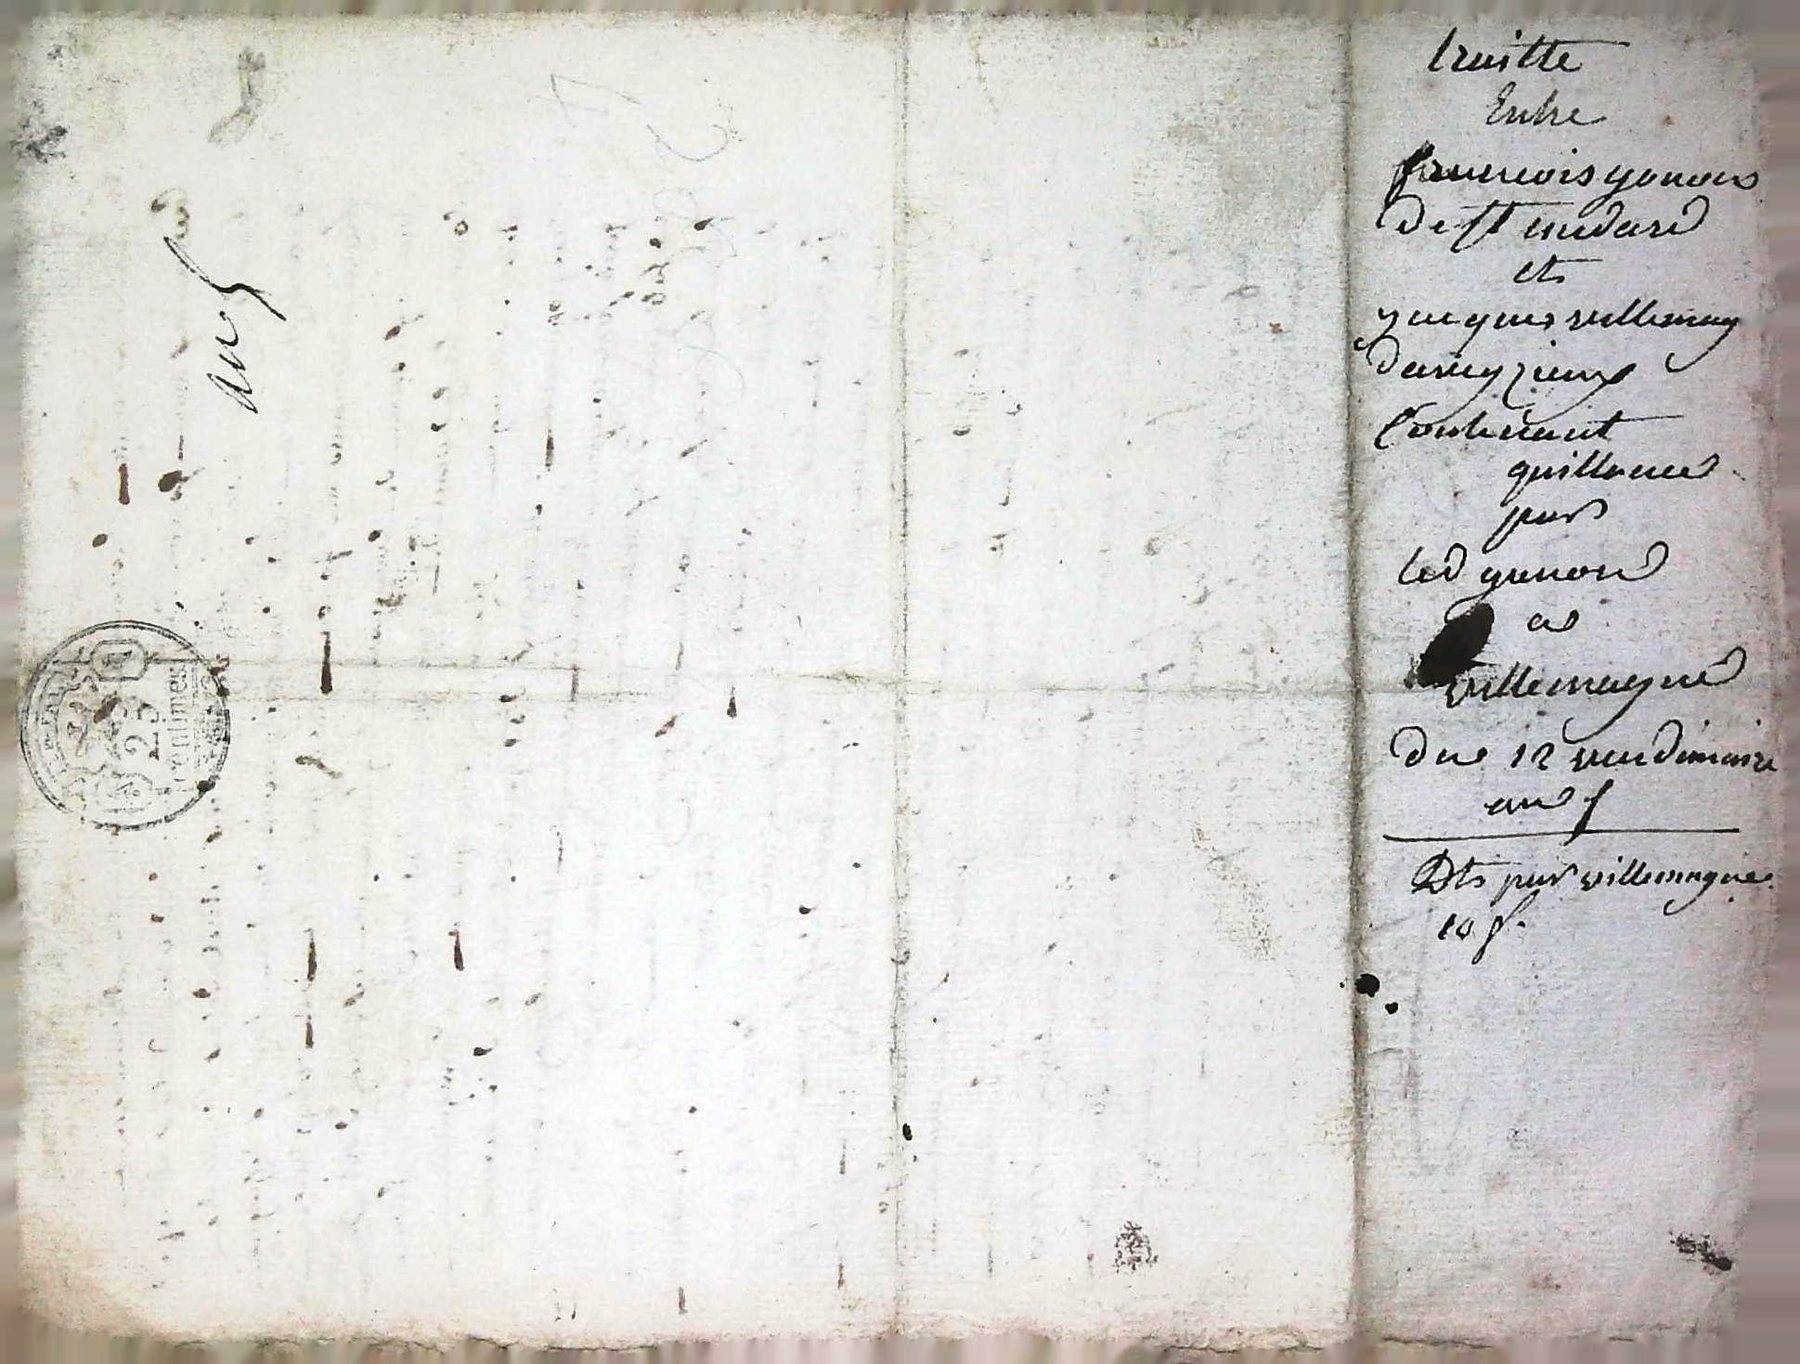 traitte
Entre
francois gonon
de st medard
et
jacques villemag
daveyzieux
Contenant
quittance
par
led gonon
a
villemagne
du 12 vendimiaire
an 5
Dt par villemagne
10 f.
an 5
25
centimes